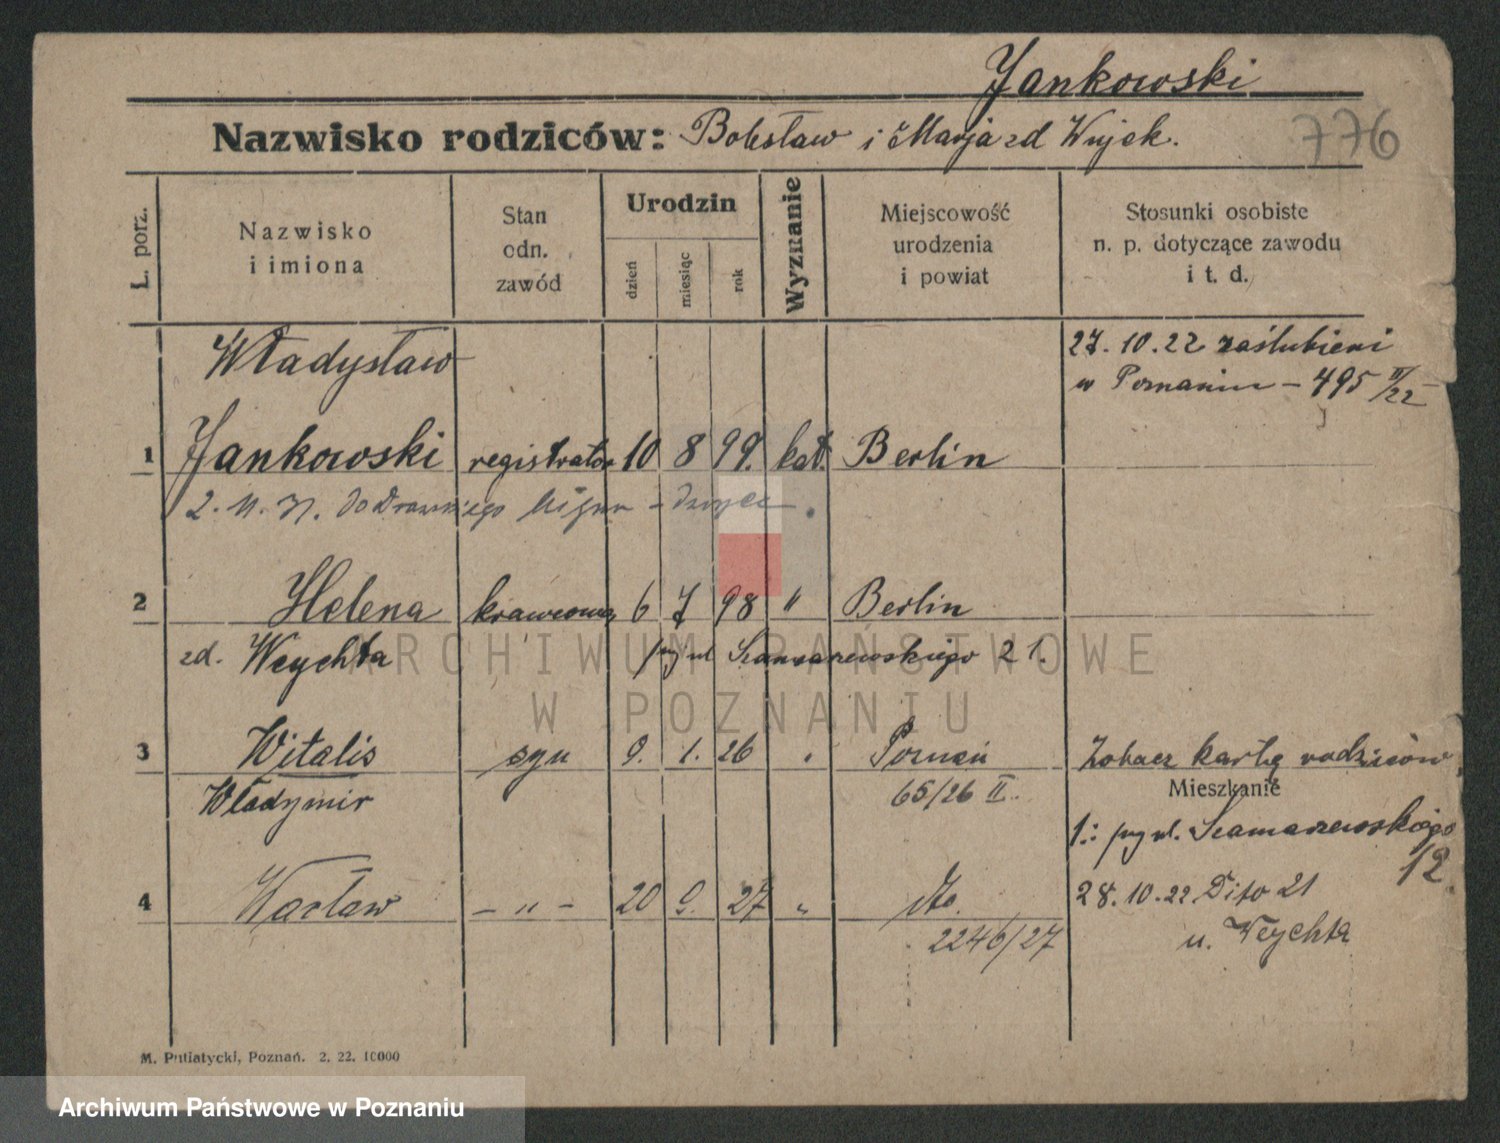 Jankowski
Nazwisko rodziców: Bolesław i Marja zd Wujek.
776
L. porz.
Nazwisko i imiona
Stan odn. zawód
Urodzin
dzień
miesiąc
rok
Wyznanie
Miejscowość urodzenia i powiat
Stosunki osobiste n. p. dotyczące zawodu i t. d.
Władysław
27. 10. 22 zaślubieni
w Poznaniu - 495 III/22
1 Jankowski registrator 10 8 99. kat. Berlin
2. 11. 31. do
2 Helena krawcowa 6 7 98 " Berlin
zd. Weychta ul Szamarzewskiego 21.
3 Witalis syn 9. 1. 26 " Poznań Zobacz kartę rodziców
Władymir 65/26 II. Mieszkanie
1.: ul. Szamarzewskiego
12.
4 Wacław - " - 20 9. 27 " dto. 28. 10. 22. Dito 21
2246/27 u. Weychta
M. Putiatycki, Poznań. 2. 22. 10000
ARCHIWUM PAŃSTWOWE
W POZNANIU
Archiwum Państwowe w Poznaniu